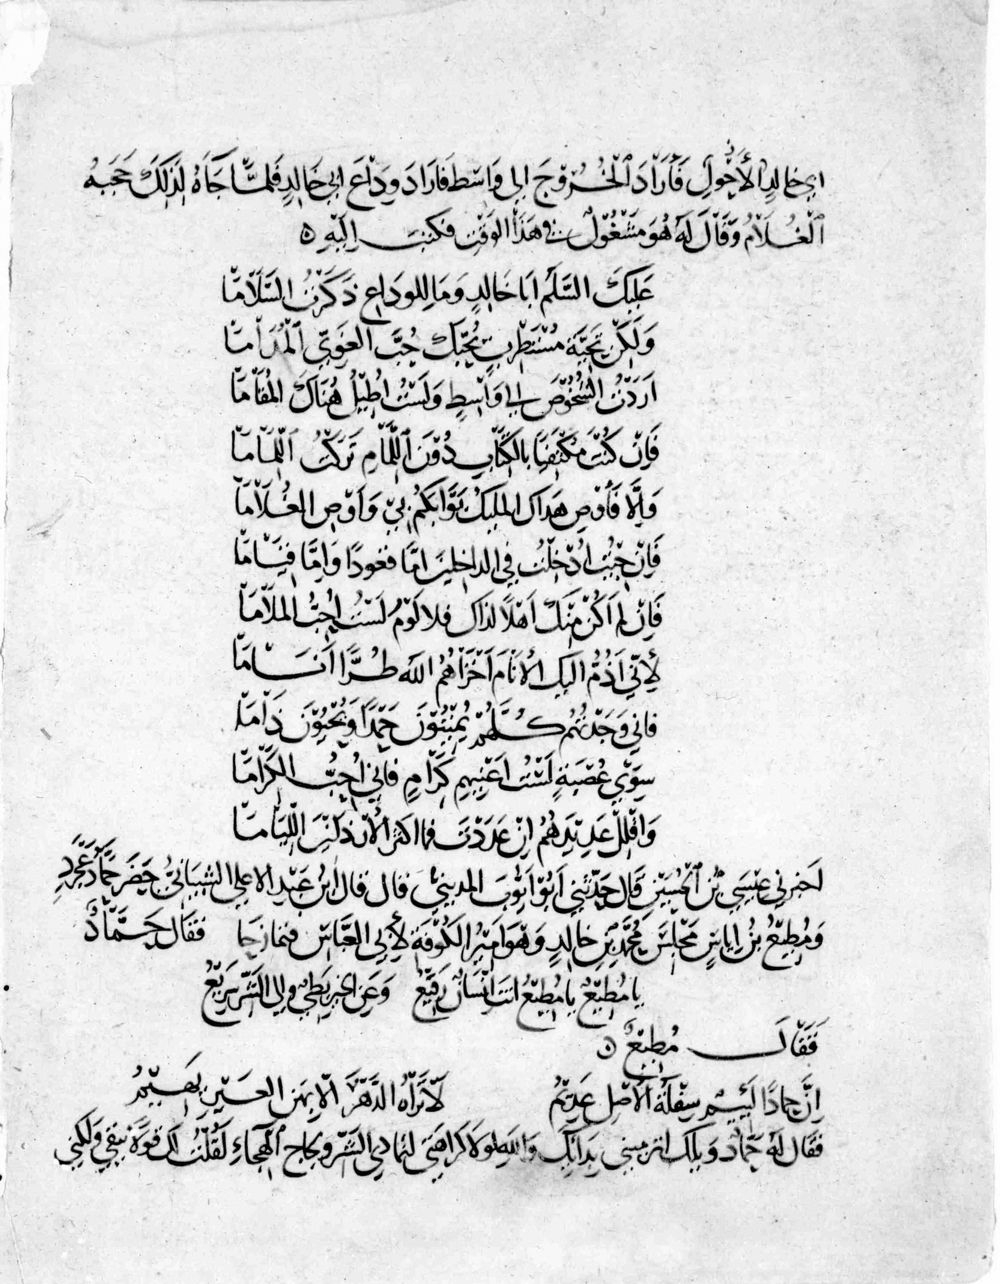 ابي خالدٍ الأَحْوَلِ فَأَرَادَ الْخُرُوْجَ الى وَاسِط فَارَادَ وِدَاعَ ابي خَالِدٍ فَلمَّا جَآءَهُ لِذَلِكَ حَجَبهُ
الْغُلَامُ وَقَالَ لَهُ هُوَ مَشْغُوْلٌ في هَذَا الوَقْتِ فكتب إليْهِ ٥
عَلَيكَ السَّلَمُ ابَا خَالِدٍ وَمَا لِلوَدَاعِ ذَكَرْتُ السَّلَامَا
وَلَكِنْ تَحِيَّةَ مُسْتَطْرِبٍ يُحِبُّكَ حُبَّ الغَوِيِّ الْمُدَامَا
اَرَدْتُ الشُّخُوْصَ الى وَاسِطٍ وَلَسْتُ اُطِيْلُ هُنَاكَ المُقَامَا
فَاِنْ كُنْتَ مُكْتَفِيًا بالكِتَابِ دُوْنَ اللِّمَامِ تَرَكْتُ اللِّمَامَا
وَاِلَّا فَأَوْصِ هَدَاكَ المَلِيكُ بَوَّابَكُمْ بِيْ وَاَوْصِ الغُلَامَا
فَاِنْ جِئْتُ اُدْخِلْتُ في الداخلين امَّا قعُودًا وَاِمَّا قِيَامَا
فَاِنْ لم اَكُنْ مِنْكَ اَهْلًا لذاكَ فلا لَوْمَ لَسْتُ اُحِبُّ المَلَامَا
لأَنِّي اَذُمُّ اليكَ الأنَامَ اَخْزَاهُمُ اللهُ طُرًّا اَنَامَا
فاني وَجَدْتُهُمُ كُلَّهُمْ يُمِيْتُوْنَ حَمْدًا وَيُحْيُوْنَ ذَامَا
سِوَى عُصْبَةٍ لَسْتُ اعْنِيهِمِ كِرَامٍ فاني اُحِبُّ الكِرَامَا
وَاقْلِل عَدِيْدَهُمُ اِنْ عَدَدْتَ فما اكثر الأَرْذَلِيْنَ اللِّيَامَا
اَخبرني عِيسَى بْنُ الحُسَيْنِ قَالَ حَدَّثَنِي اَبُوْ اَيُّوبَ المَدِينيُّ قال قال ابْنُ عَبْدِ الاعلى الشيبَانيُّ حَضَر حَمَّادُ عَجْرَدٍ
وَمُطِيْعُ بنُ اِيَاسٍ مَجْلِسَ مُحَمَّدِ بنِ خالِدٍ وَهوَ اَمِيْرُ الكُوفَةِ لأبي العَبَّاسِ فتمازحَا فقال حَمَّادٌ
يا مُطِيْعُ يا مُطِيْعُ انتَ اِنْسَانٌ رَقِيْعُ وَعَنِ الخيرِ بَطِيءٌ والى الشَّرِّ سَرِيْعُ
فَقَالَ مُطِيْعٌ ٥
اِنَّ حَمَّادًا لَئِيْم سِفْلَةُ الأَصْلِ عَدِيْمُ لَا تَرَاهُ الدَّهْرَ الا بهنِ العَيْرِ يَهِيْمُ
فقَالَ لَهُ حَمَّادٌ وَيلك اترمِيني بِدَائِكَ وَاللهِ لولا كَراهَتي لتمادي الشَّرِّ ولجاج الْهِجَاءِ لَقُلْتُ لَكَ قَوْلًا يبقى ولكني